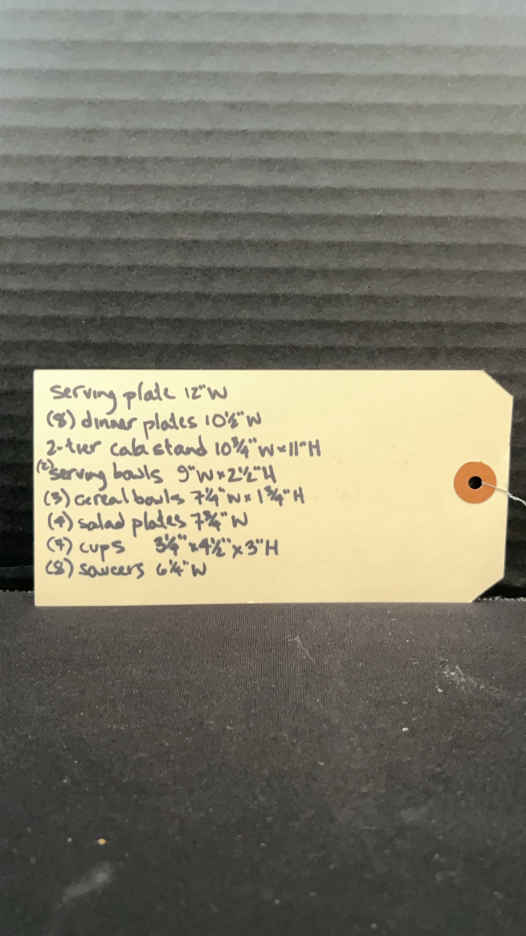 serving plate 12"W
(8) dinner plates 10½"W
2-tier cake stand 10¾"W×11"H
(2) serving bowls 9"W×2½"H
(3) cereal bowls 7¼"W×1¾"H
(4) salad plates 7¾"W
(7) cups 3¼"×4½"×3"H
(8) saucers 6¼"W